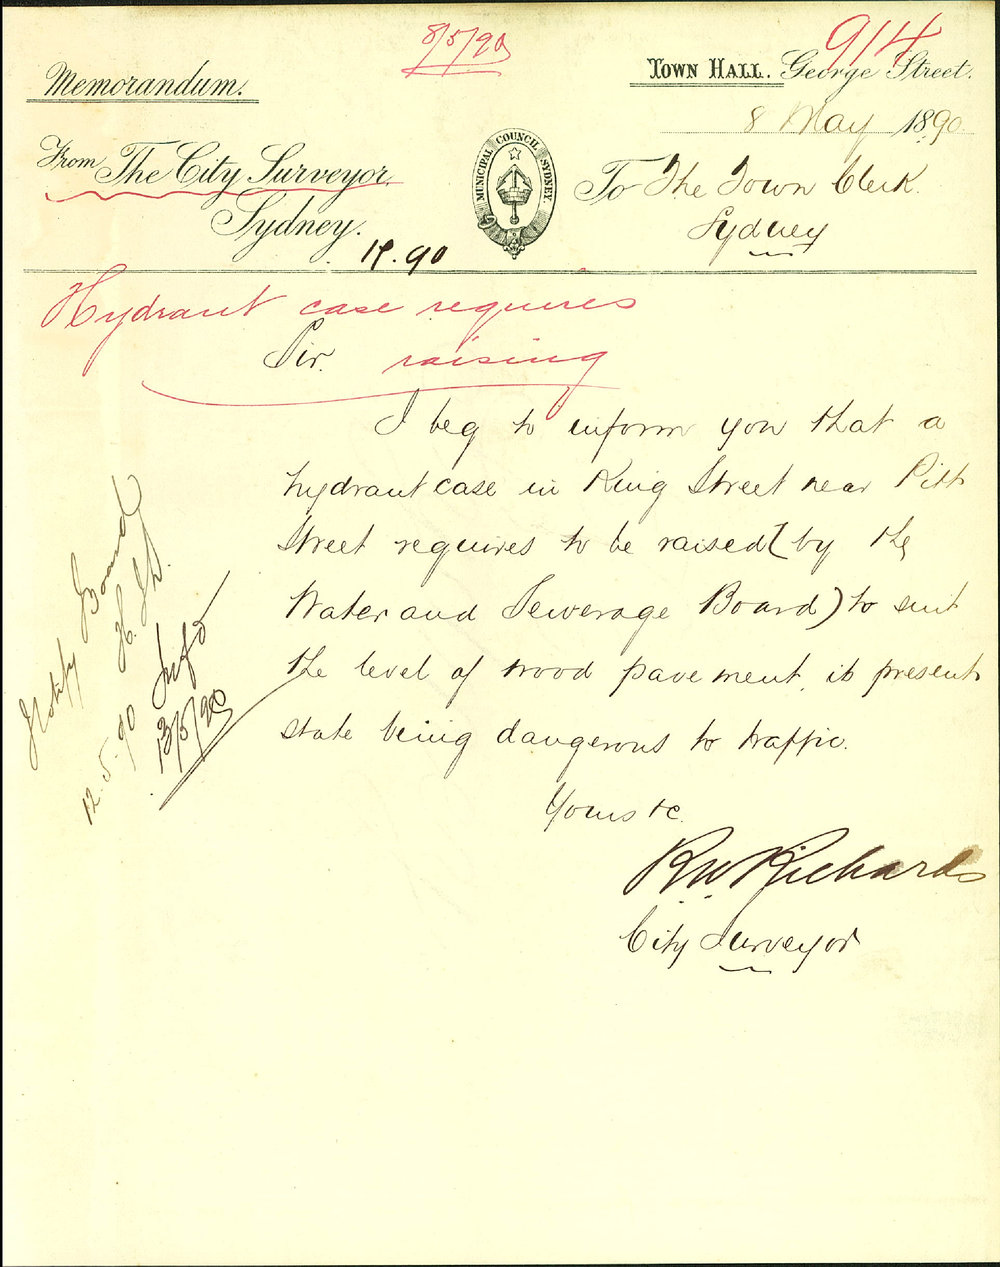 8/5/90
914
Memorandum.
Town Hall. George Street.
8 May 1890
From The City Surveyor,
Sydney.
MUNICIPAL COUNCIL SYDNEY.
To The Town Clerk.
Sydney
17.90
Hydrant case requires
raising
Sir.
I beg to inform you that a
hydrant case in King Street near Pitt
Street requires to be raised (by the
Water and Sewerage Board) to suit
the level of wood pavement, its present
state being dangerous to traffic.
Yours &c.
R W Richards
City Surveyor
Notify Board
12.5.90
13/5/90